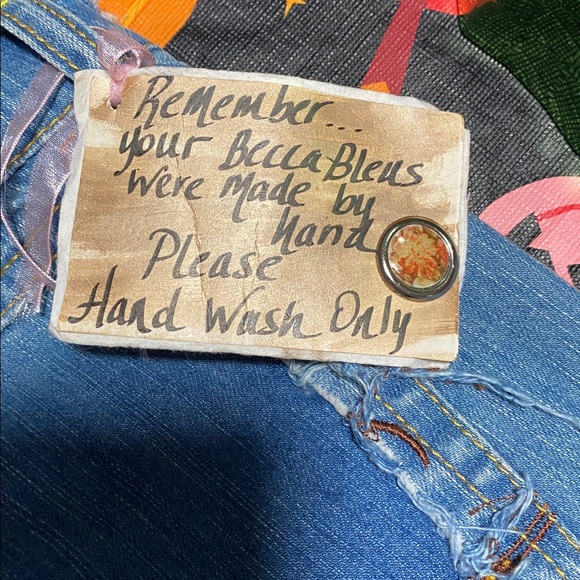 Remember...
your Becca Bleus
were made by
hand
Please
Hand Wash Only